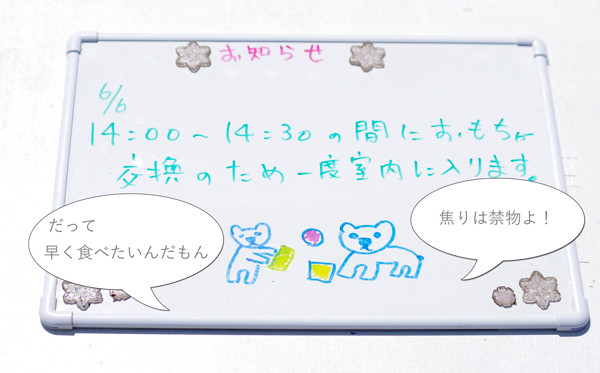 お知らせ
6/6
14:00～14:30の間におもちゃ
交換のため一度室内に入ります。
だって
早く食べたいんだもん
焦りは禁物よ！